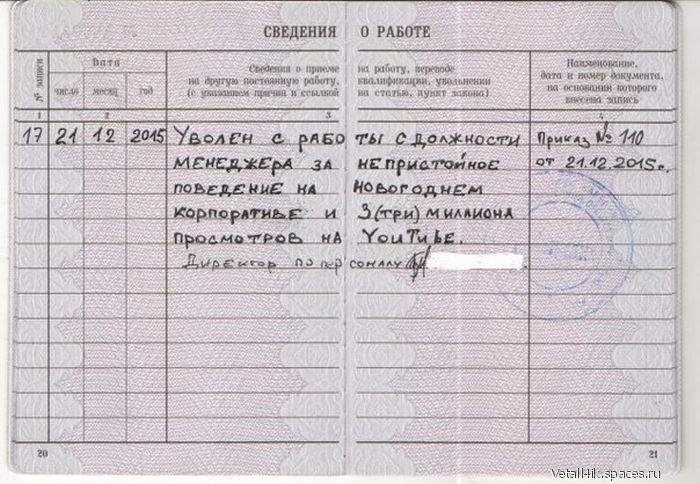 СВЕДЕНИЯ О РАБОТЕ
№ записи
Дата
число месяц год
Сведения о приеме на работу, переводе
на другую постоянную работу, квалификации, увольнении
(с указанием причин и ссылкой на статью, пункт закона)
Наименование,
дата и номер документа,
на основании которого
внесена запись
1 2 3 4
17 21 12 2015 Уволен с работы с должности Приказ № 110
менеджера за непристойное от 21.12.2015г.
поведение на новогоднем
корпоративе и 3(три) милиона
просмотров на YouTube.
Директор по персоналу
20 21
Vetall4ik.spaces.ru